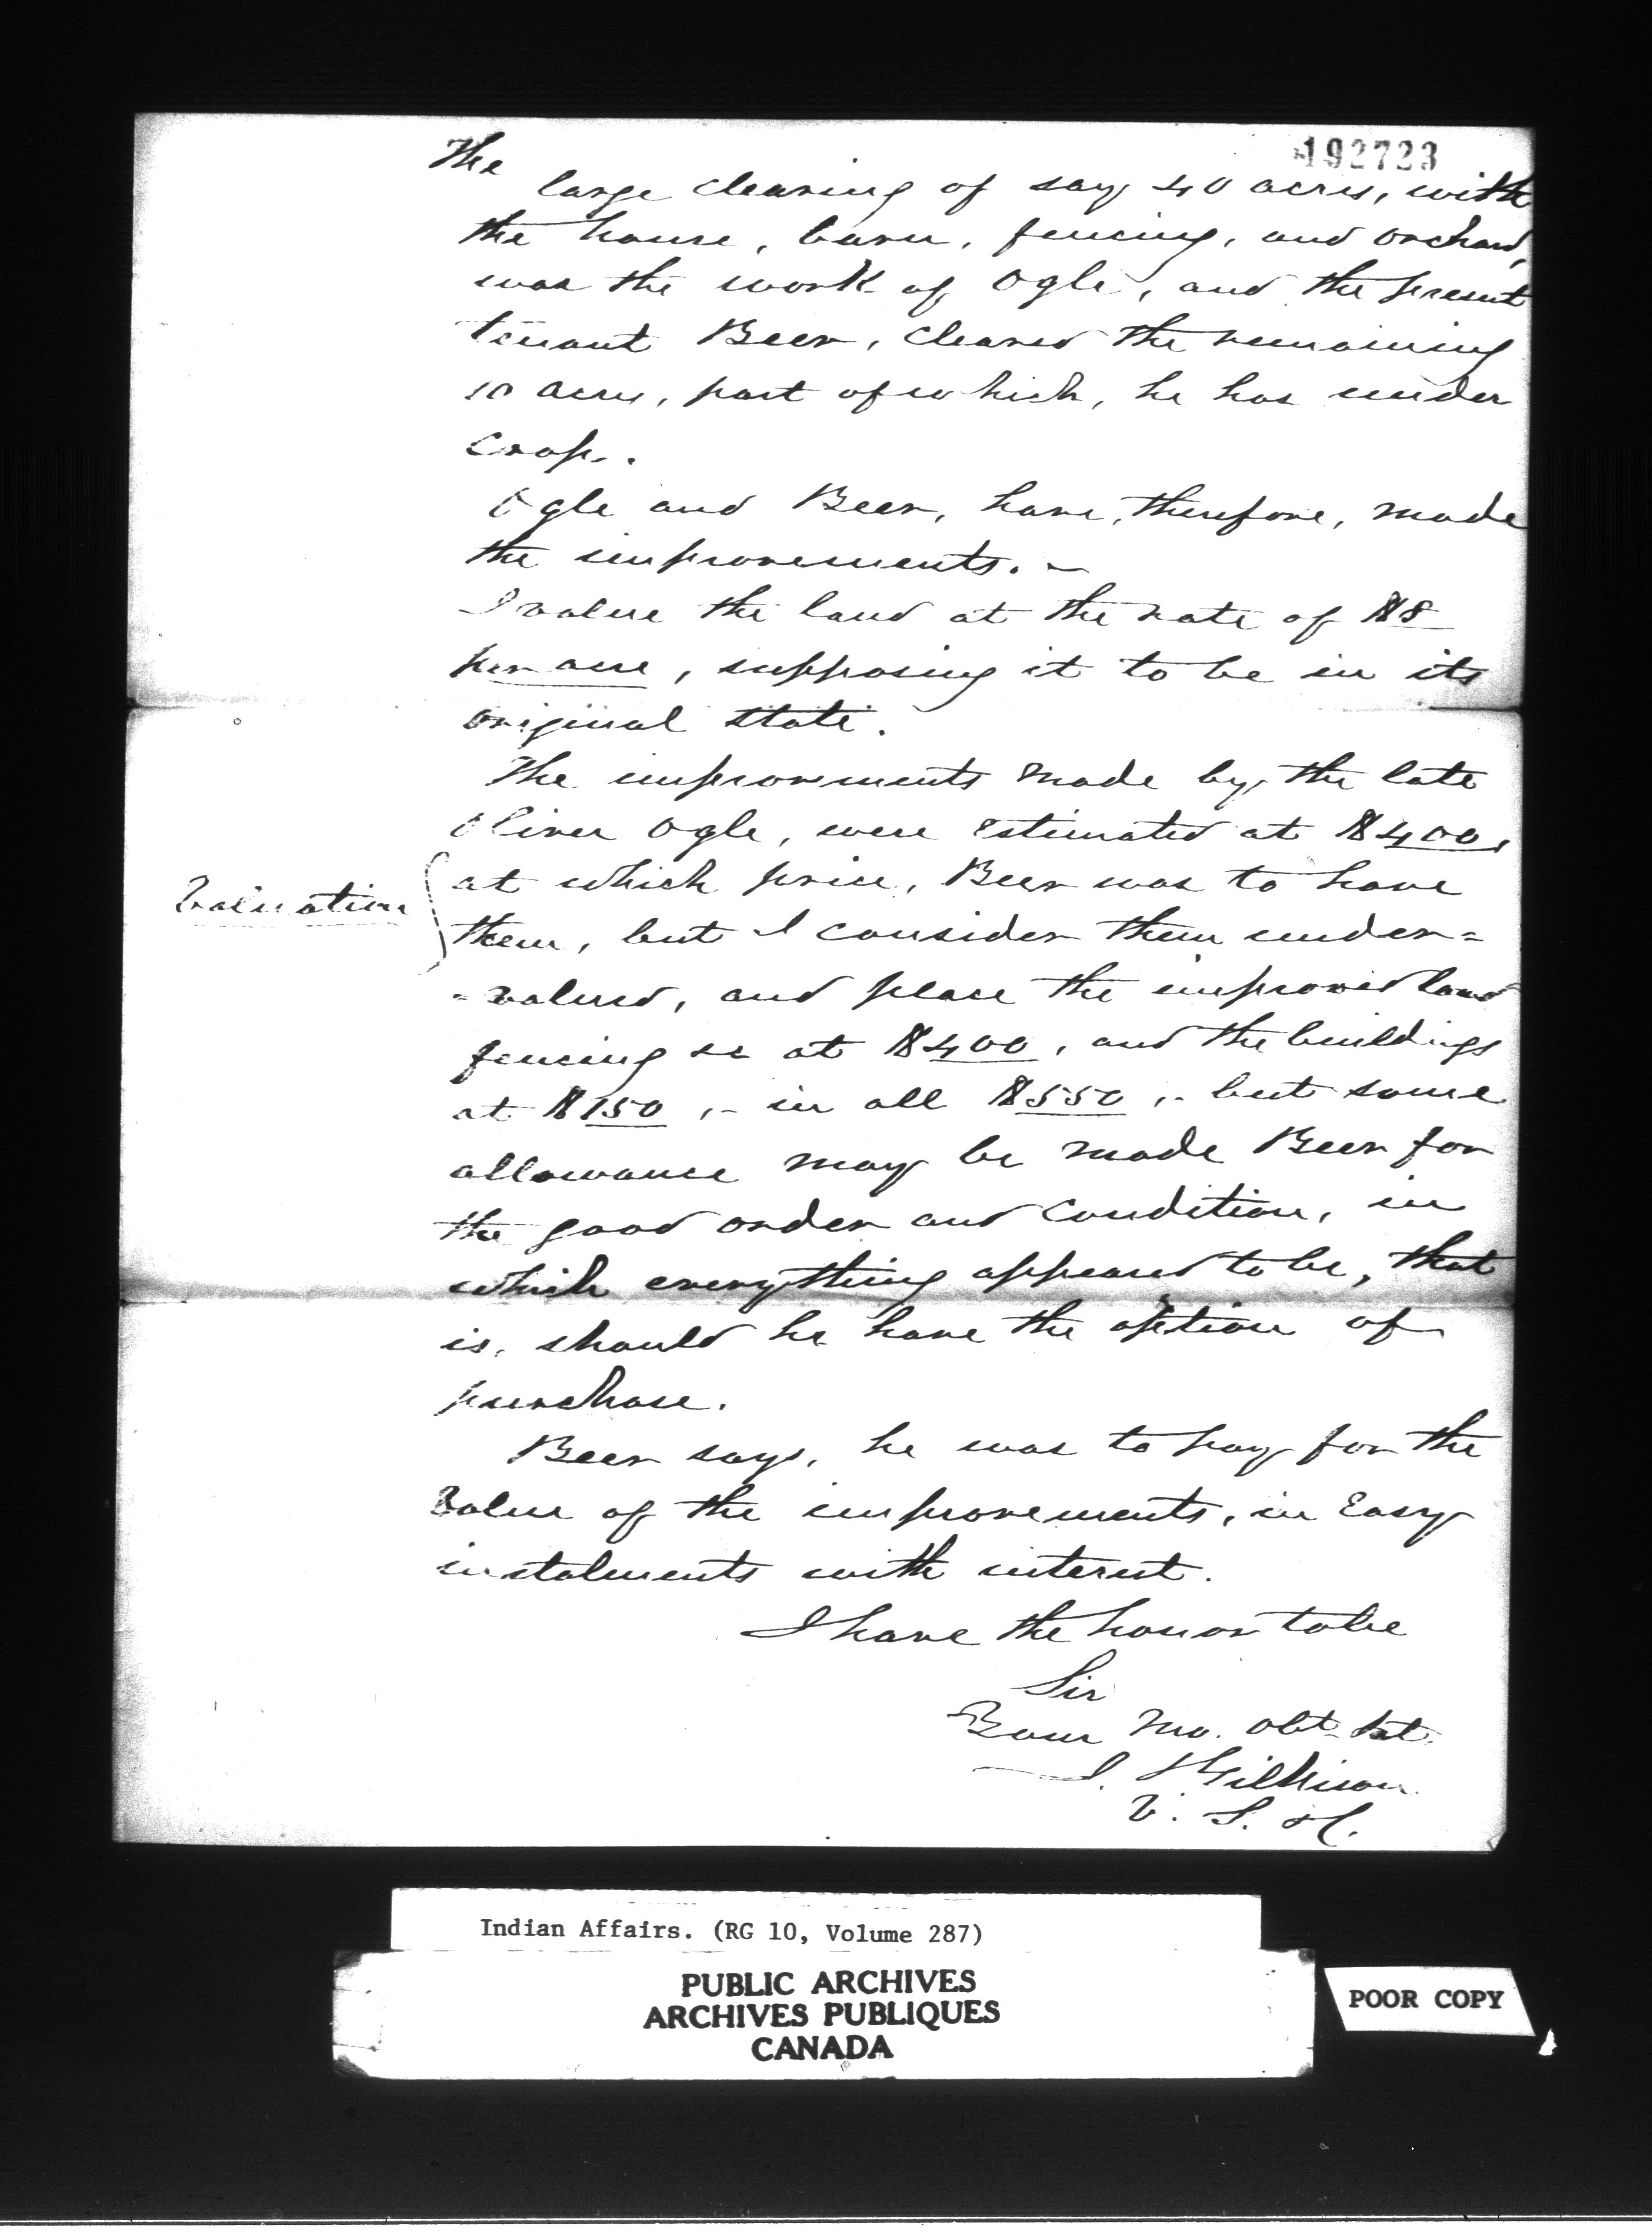 192723
The
large clearing of say 40 acres, with
the house, barn, fencing, and orchard,
was the work of Ogle, and the present
tenant Beer, cleared the remaining
10 acres, part of which, he has under
crop.
Ogle and Beer, have, therefore, made
the improvements. -
I value the land at the rate of $8
per acre, supposing it to be in its
original state.
The improvements made by the late
Oliver Ogle, were estimated at $400,
at which price, Beer was to have
Valuation
them, but I consider them under=
=valued, and place the improved land
fencing &c at $400, and the buildings
at $150, - in all $550, - but some
allowance may be made Beer for
the good order and condition, in
which everything appeared to be, that
is, should he have the option of
purchase.
Beer says, he was to pay for the
value of the improvements, in easy
instalments with interest.
I have the honor to be
Sir
Your Mo. Obt. St.
J. Gilkison
V. S. I.
Indian Affairs. (RG 10, Volume 287)
PUBLIC ARCHIVES
ARCHIVES PUBLIQUES
CANADA
POOR COPY